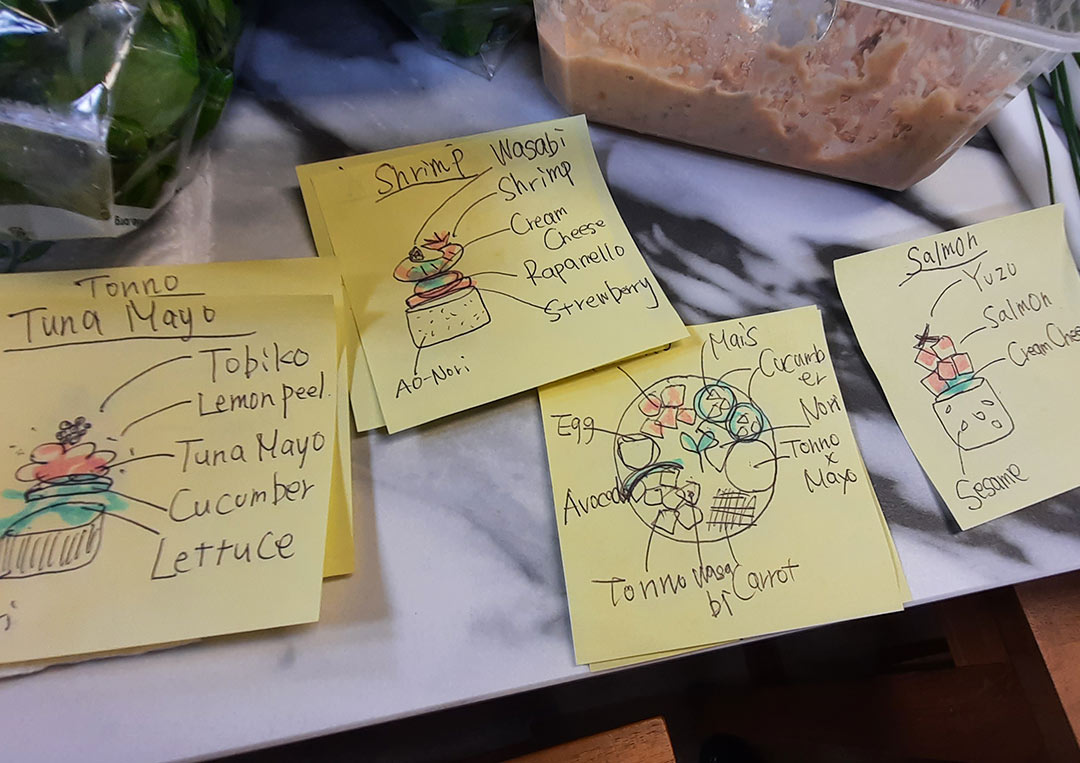 Tonno
Tuna Mayo
Tobiko
Lemon peel.
Tuna Mayo
Cucumber
Lettuce
Shrimp
Wasabi
Shrimp
Cream
Cheese
Rapanello
Strewberry
AO-Nori
Mais
Cucumb
er
Nori
Tonno
x
Mayo
Egg
Avocado
Tonno
Wasa
bi
Carrot
Salmon
Yuzu
Salmon
Cream Chee
Sesame